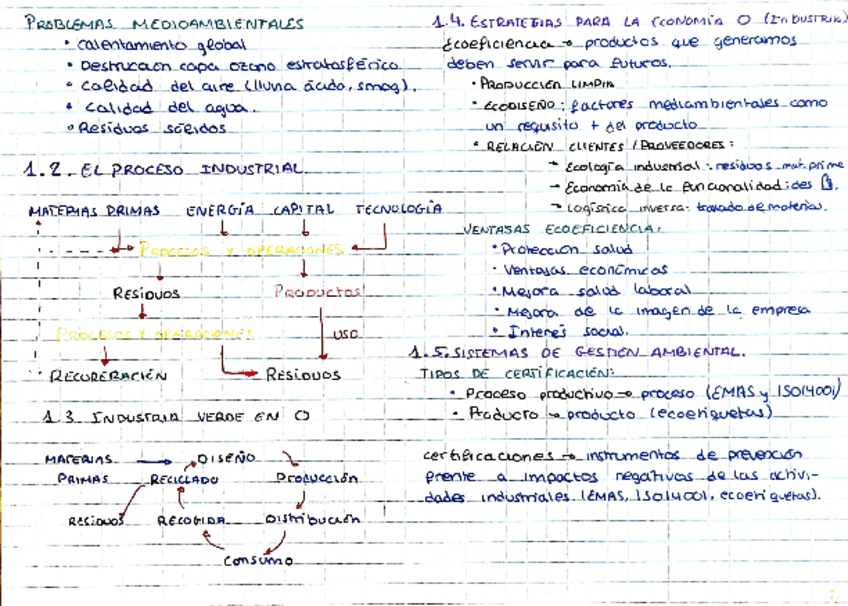 PROBLEMAS MEDIOAMBIENTALES
• Calentamiento global
• Destrucción capa ozono estratosférico
• Calidad del aire (lluvia ácido, smog).
• Calidad del agua.
• Residuos sólidos
1.2. EL PROCESO INDUSTRIAL
MATERIAS PRIMAS ENERGÍA CAPITAL TECNOLOGÍA
PROCESOS Y OPERACIONES
RESIDUOS PRODUCTOS
PROCESOS Y OPERACIONES USO
RECUPERACIÓN RESIDUOS
1.3. INDUSTRIA VERDE EN O
MATERIAS → DISEÑO
PRIMAS RECICLADO PRODUCCIÓN
RESIDUOS RECOGIDA DISTRIBUCIÓN
CONSUMO
1.4. ESTRATEGIAS PARA LA ECONOMÍA O (INDUSTRIA)
Ecoeficiencia → productos que generamos
deben servir para futuros.
• PRODUCCIÓN LIMPIA
• ECODISEÑO: factores medioambientales como
un requisito + del producto
• RELACIÓN CLIENTES / PROVEEDORES:
→ Ecología industrial: residuos mat. prime
→ Economía de la funcionalidad: des
→ Logística inversa: tratado de materias.
VENTAJAS ECOEFICIENCIA:
• Protección salud
• Ventajas económicas
• Mejora salud laboral
• Mejora de la imagen de la empresa
• Interés social.
1.5. SISTEMAS DE GESTIÓN AMBIENTAL.
TIPOS DE CERTIFICACIÓN:
• Proceso productivo → proceso (EMAS y ISO14001)
• Producto → producto (ecoetiquetas)
certificaciones → instrumentos de prevención
frente a impactos negativos de las activi-
dades industriales (EMAS, ISO14001, ecoetiquetas).